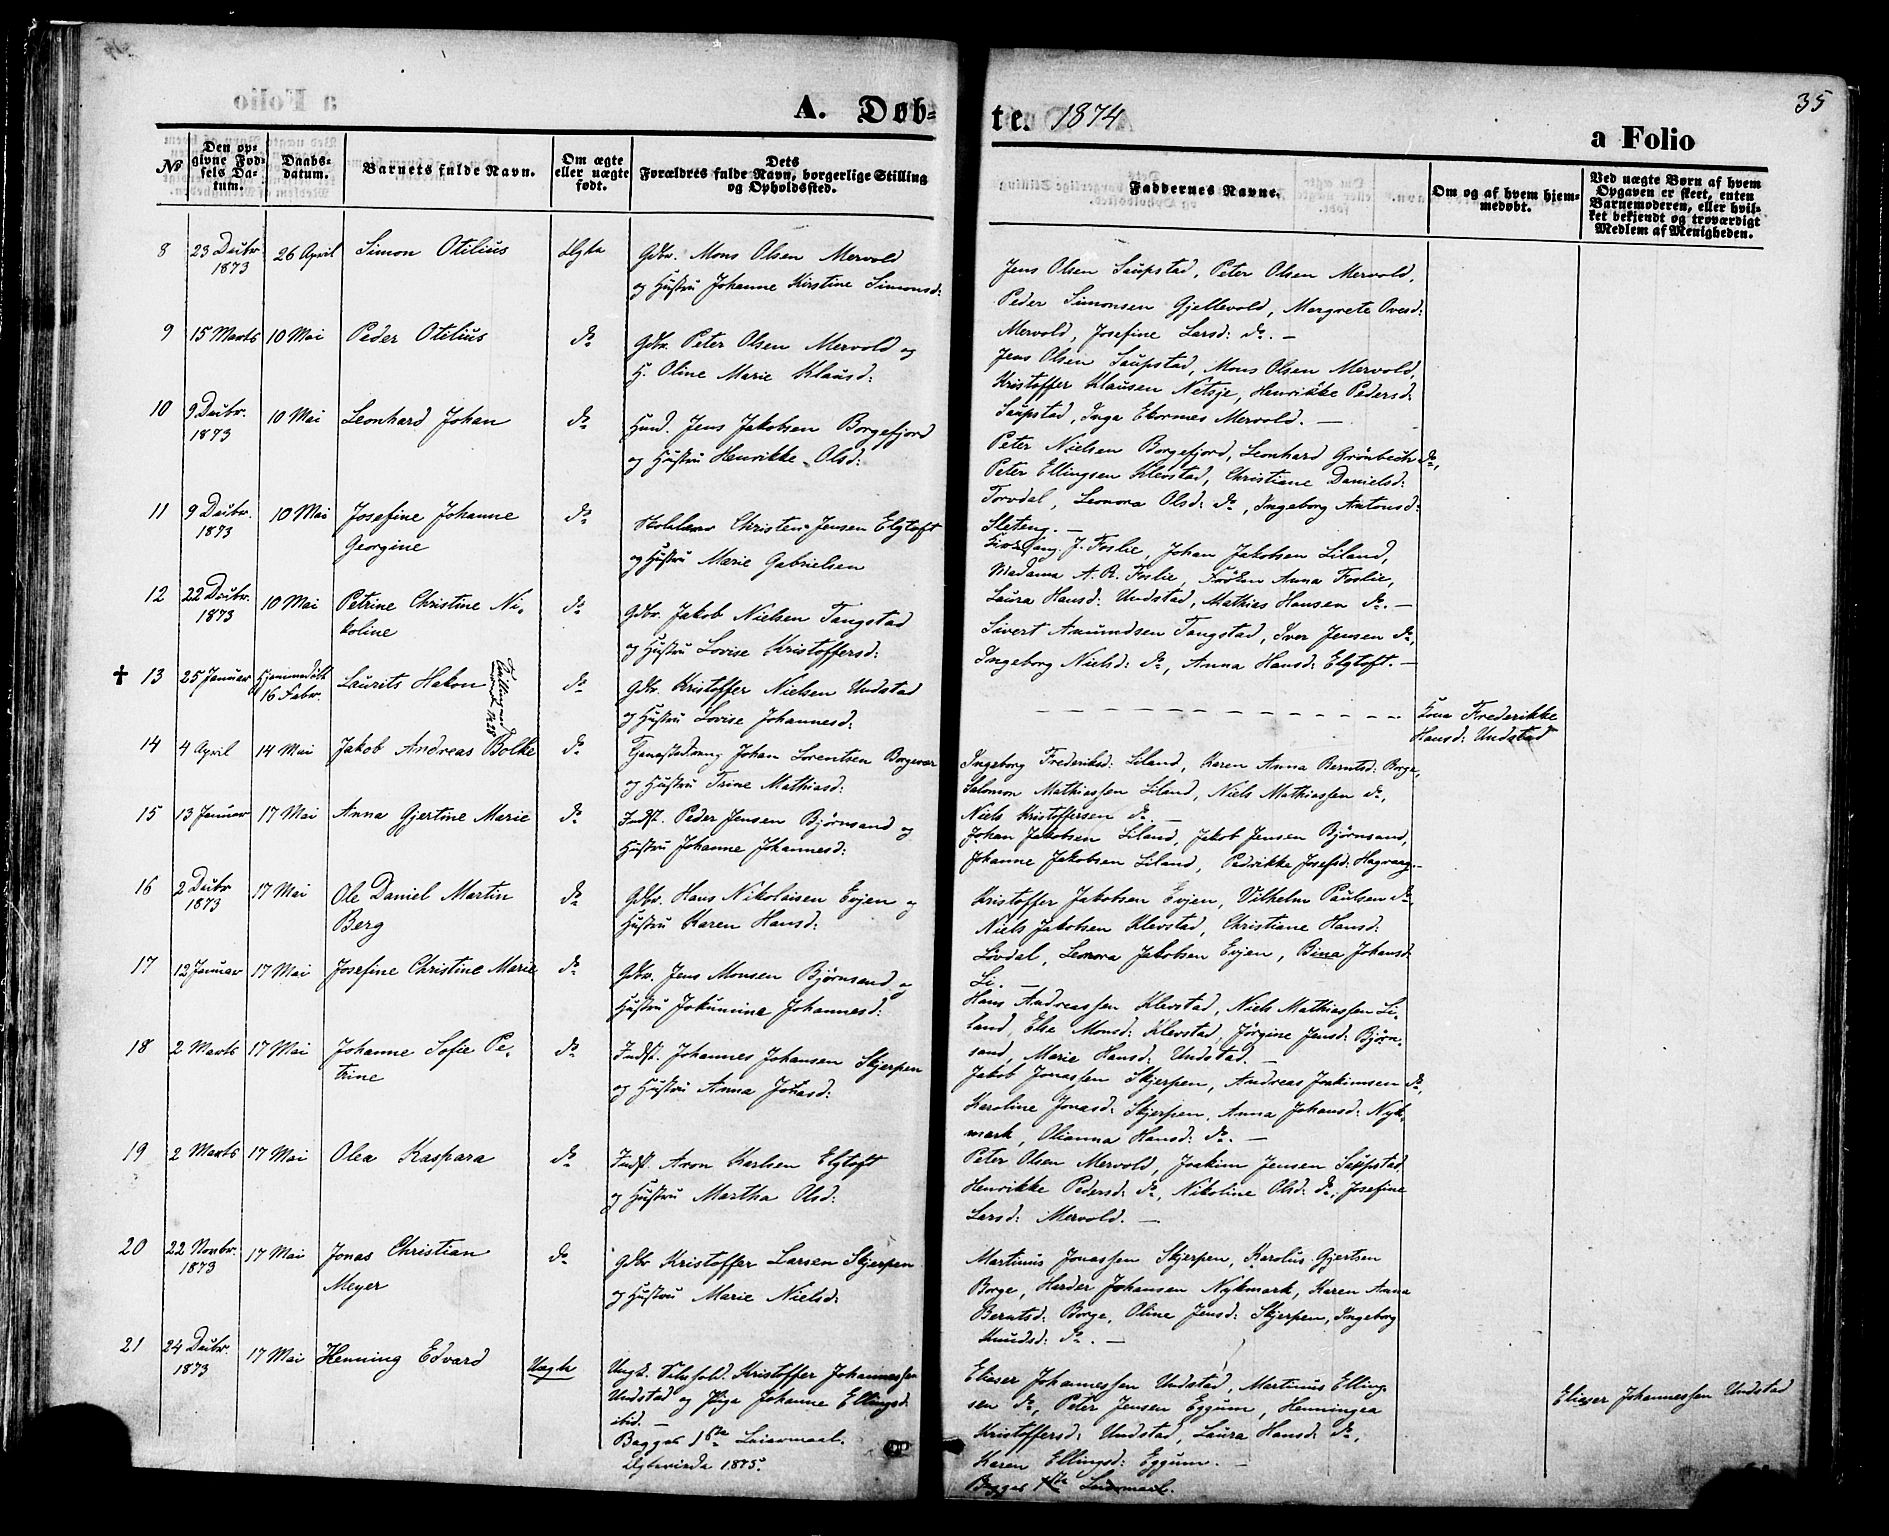 A. Døb-
te. 1874
35
a Folio
№
Den op-
givne Fød-
sels Da-
tum.
Daabs-
datum.
Barnets fulde Navn.
Om ægte
eller uægte
født.
Dets
Forældres fulde Navn, borgerlige Stilling
og Opholdssted.
Faddernes Navne.
Om og af hvem hjem-
medøbt.
Ved uægte Børn af hvem
Opgaven er skeet, enten
Barnemoderen, eller hvil-
ket bekjendt og troværdigt
Medlem af Menigheden.
8 23 Decbr. 1873 26 April Simon Otilius Ægte
Gdbr. Mons Olsen Mervold
og Hustru Johanne Kirstine Simonsd:
Jens Olsen Saupstad, Peter Olsen Mervold,
Peder Simonsen Gjellevold, Margrete Ovesd:
Mervold, Josefine Larsd: do. —
9 15 Marts 10 Mai Peder Otilius do
Gdbr. Peter Olsen Mervold og
H. Oline Marie Klausd:
Jens Olsen Saupstad, Mons Olsen Mervold,
Kristoffer Klausen Netsje, Henrikke Pedersd:
Saupstad, Inga Ekornes Mervold. —
10 9 Decbr. 1873 10 Mai Leonhard Johan do
Husd. Jens Jakobsen Borgefjord
og Hustru Henrikke Olsd:
Peter Nielsen Borgefjord, Leonhard Grønbech do,
Peter Ellingsen Klevstad, Christiane Danielsd:
Torvdal, Leonora Olsd: do, Ingeborg Antonsd:
Sleteng. —
11 9 Decbr. 1873 10 Mai Josefine Johanne
Georgine do
Skolelærer Christen Jensen Elgtoft
og Hustru Marie Gabrielsen
J. Foslie, Johan Jakobsen Liland,
Madama A. R. Foslie, Frøken Anna Foslie,
Laura Hansd: Undstad, Mathias Hansen do. —
12 22 Decbr. 1873 10 Mai Petrine Christine Ni-
koline do
Gdbr. Jakob Nielsen Tangstad
og Hustru Lovise Kristoffersd:
Sivert Amundsen Tangstad, Iver Jensen do,
Ingeborg Nielsd: do, Anna Hansd: Elgtoft. —
✝ 13 25 Januar Hjemmedøbt
16 Febr. Laurits Hakon do
Gdbr. Kristoffer Nielsen Undstad
og Hustru Lovise Johannesd:
Kona Frederikke
Hansd: Undstad
14 4 April 14 Mai Jakob Andreas Bolke do
Johan Lorentsen Borgevær
og Hustru Trine Mathiasd:
Ingeborg Frederiksd: Liland, Karen Anna Berntsd: Borge,
Salomon Mathiassen Liland, Niels Mathiassen do,
Niels Kristoffersen do. —
15 13 Januar 17 Mai Anna Gjertine Marie do
Indst. Peder Jensen Bjørnsand og
Hustru Johanne Johannesd:
Johan Jakobsen Liland, Jakob Jensen Bjørnsand,
Johanne Jakobsen Liland, Pedrikke Josefsd: Hagvaag. —
16 2 Decbr 1873 17 Mai Ole Daniel Martin
Berg do
Gdbr. Hans Nikolaisen Evjen og
Hustru Karen Hansd:
Kristoffer Jakobsen Evjen, Vilhelm Paulsen do,
Niels Jakobsen Klevstad, Christiane Hansd:
Lövdal, Leonora Jakobsen Evjen, Bina Johansd:
Li. —
17 12 Januar 17 Mai Josefine Christine Marie do
Gdbr. Jens Monsen Bjørnsand og
Hustru Jokumine Johannesd:
Hans Andreassen Klevstad, Niels Mathiassen Li-
land, Else Monsd: Klevstad, Jørgine Jensd: Bjørn-
sand, Marie Hansd: Undstad. —
18 2 Marts 17 Mai Johanne Sofie Pe-
trine do
Indst. Johannes Johansen Skjerpen
og Hustru Anna Johasd:
Jakob Jonassen Skjerpen, Andreas Joakimsen do,
Karoline Jonasd: Skjerpen, Anna Johansd: Nyk-
mark, Olianna Hansd: do. —
19 2 Marts 17 Mai Olea Kaspara do
Indst. Aron Karlsen Elgtoft
og Hustru Martha Olsd:
Peter Olsen Mervold, Joakim Jensen Saupstad
Henrikke Pedersd: do, Nikoline Olsd: do, Josefine
Larsd: Mervold. —
20 22 Novbr. 1873 17 Mai Jonas Christian
Meyer do
Gdbr Kristoffer Larsen Skjerpen
og Hustru Marie Nielsd:
Martinus Jonassen Skjerpen, Karolus Gjertsen
Borge, Harder Johansen Nykmark, Karen Anna
Berntsd: Borge, Oline Jensd: Skjerpen, Ingeborg
Knudsd: do. —
21 24 Decbr. 1873 17 Mai Henning Edvard Uægte
Ungk. Kristoffer Johannessen
Undstad og Pige Johanne Ellingsd:
ibid. —
Begges 1ste Leiermaal.
Ægtevieda 1875.
Elieser Johannessen Undstad, Martinus Elling-
sen do, Peter Jensen Eggum, Henningea
Kristoffersd: Undstad, Laura Hansd: do,
Karen Ellingsd: Eggum. —
Begges 1ste Leiermaal.
Elieser Johannessen Undstad